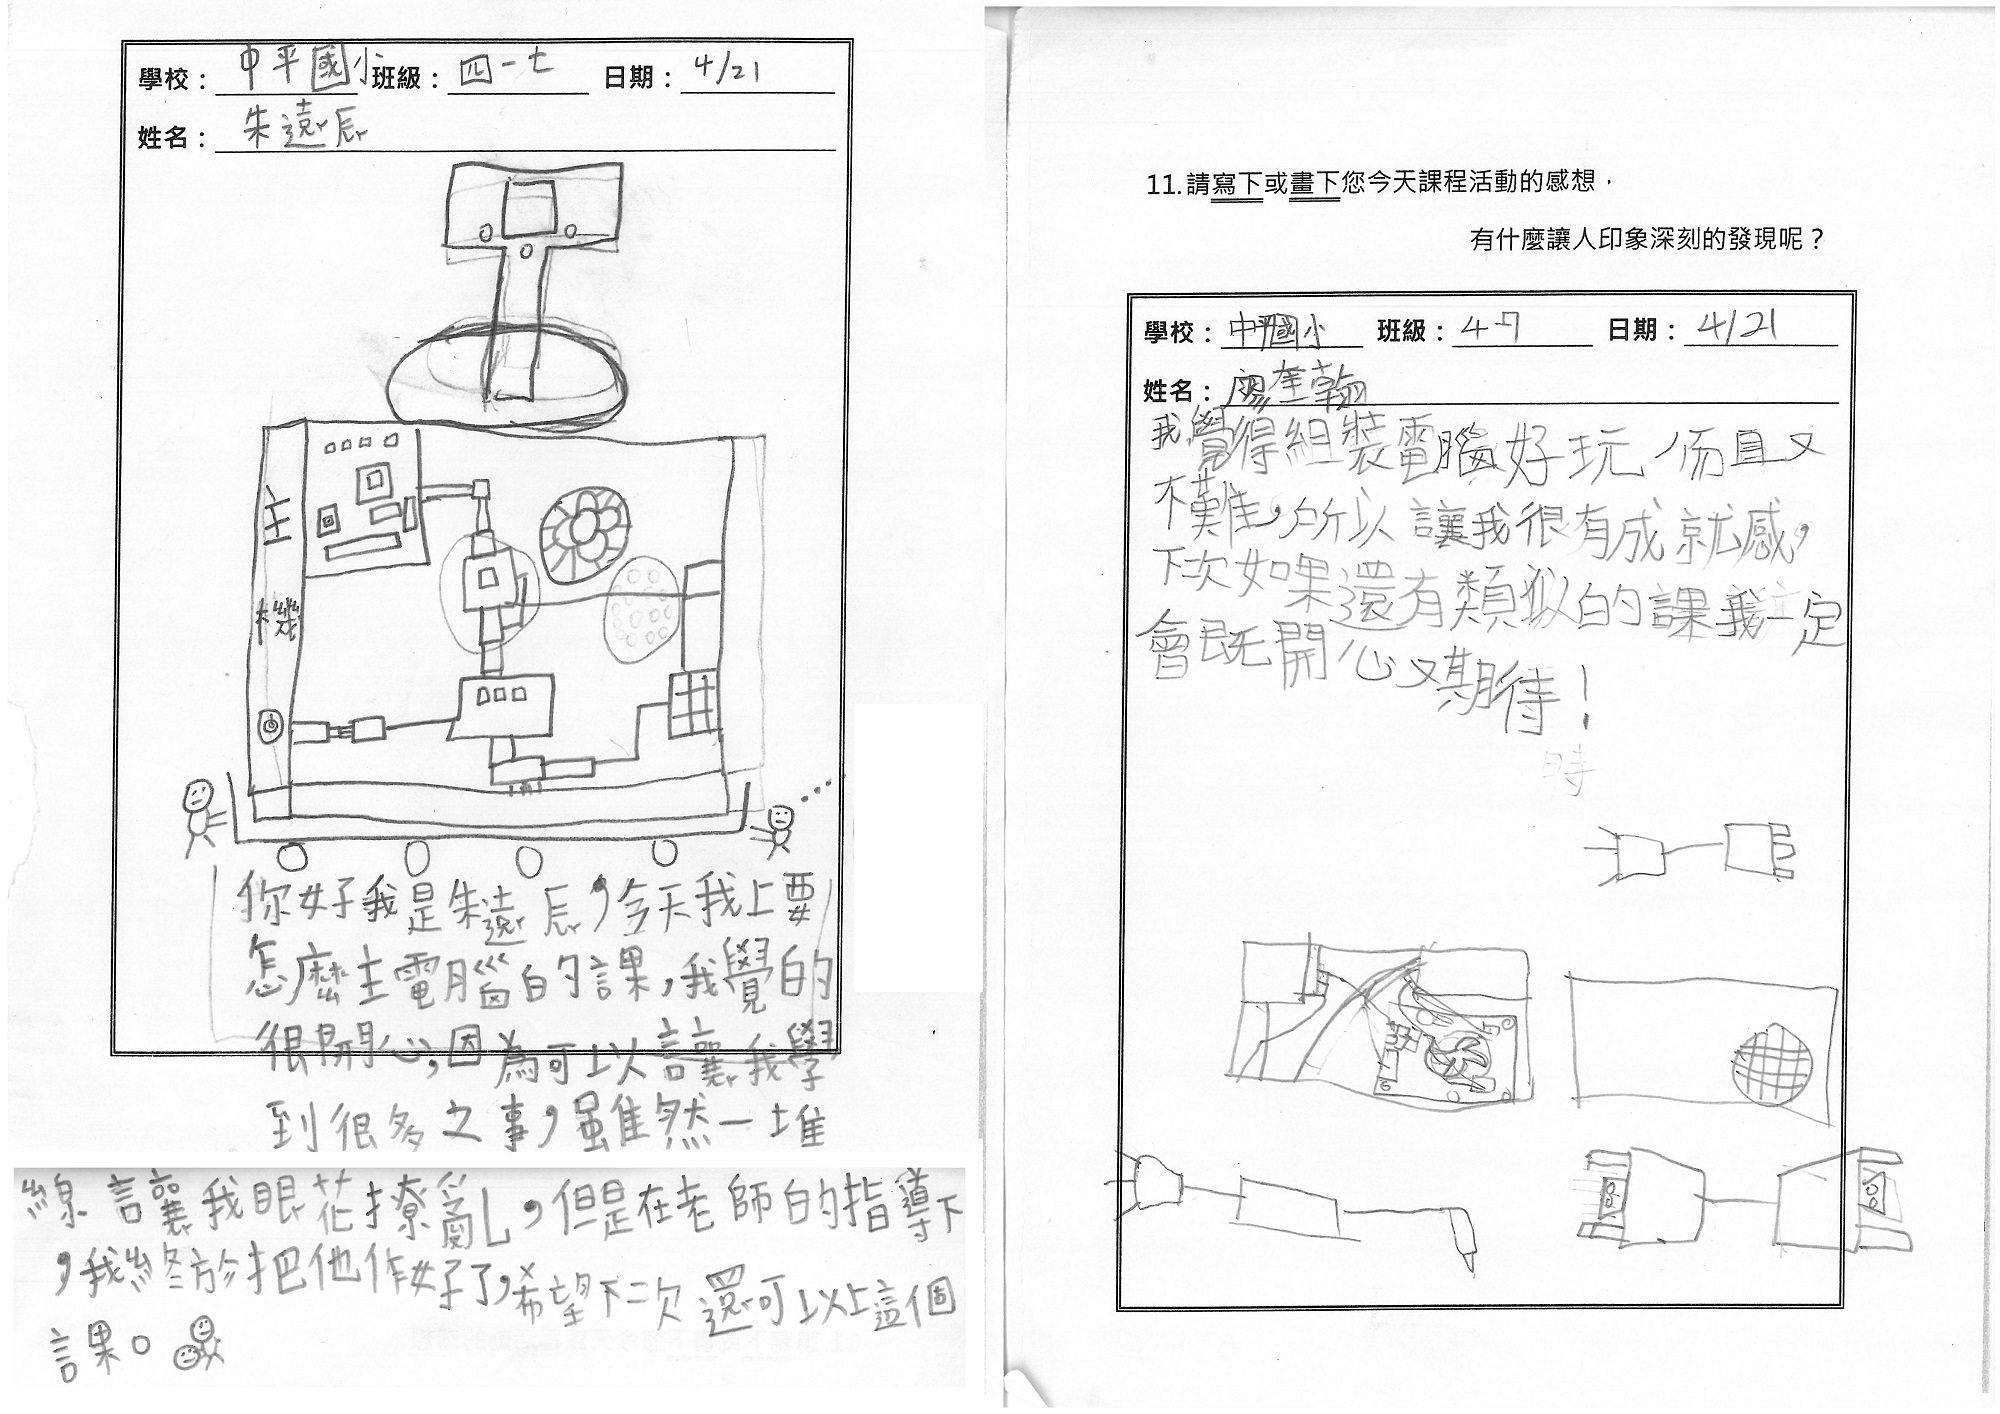 學校：中平國小 班級：四一七 日期：4/21
姓名：朱遠辰
主
機
你好我是朱遠辰，今天我上要
怎麼主電腦的課，我覺的
很開心，因為可以讓我學
到很多之事，雖然一堆
線讓我眼花撩亂，但是在老師的指導下
，我終於把他作好了，希望下二次還可以上這個
課。
11.請寫下或畫下您今天課程活動的感想，
有什麼讓人印象深刻的發現呢？
學校：中平國小 班級：4-7 日期：4/21
姓名：廖奎翰
我覺得組裝電腦好玩而且又
不難，所以讓我很有成就感，
下次如果還有類似的課我一定
會既開心又期待！
時